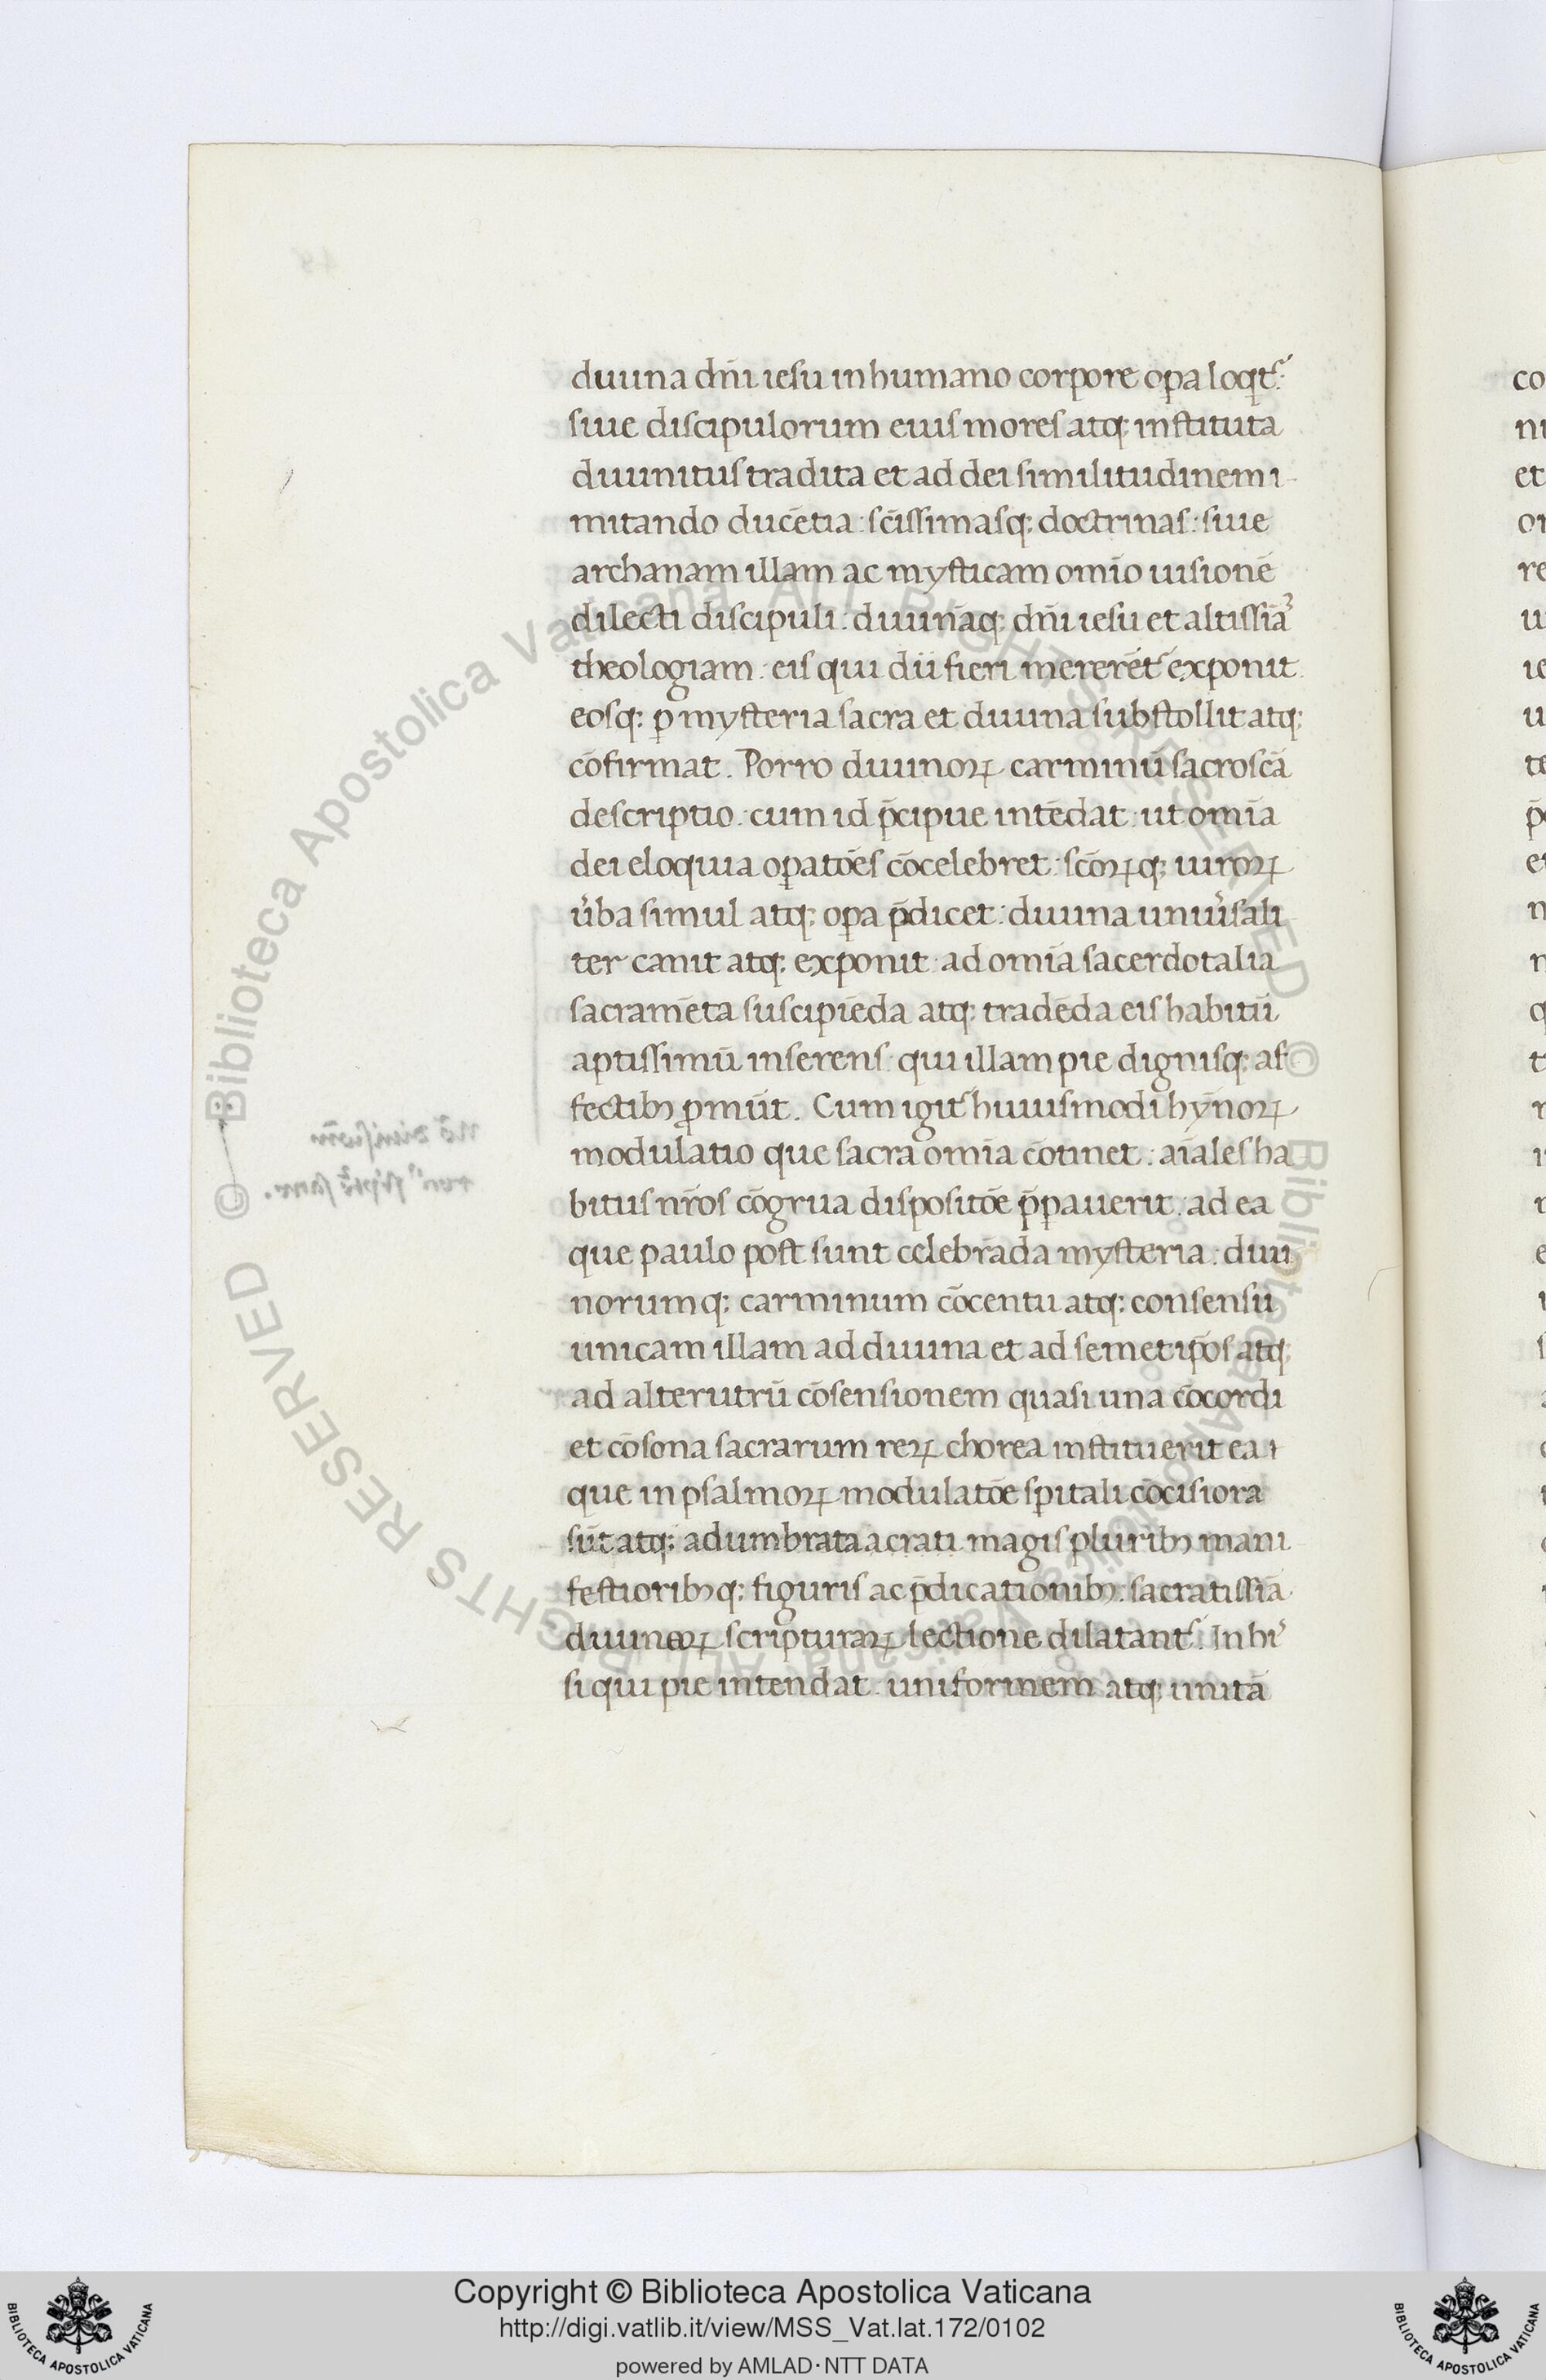 diuina dn̄i iesu in humano corpore oꝑa loqt᷑:
siue discipulorum eius mores atq; instituta
diuinitus tradita et ad dei similitudinem i-
mitando ducētia: sc̄issimasq; doctrinas: siue
archanam illam ac mysticam om̄io uisionē
dilecti discipuli: diuināq; dn̄i iesu et altissīā
theologiam: eis qui dii fieri mererēt᷑ exponit
eosq; ꝑ mysteria sacra et diuina substollit atq;
cōfirmat. Porro diuinoꝝ carminū sacroscā
descriptio: cum id p̄cipue intēdat: ut om̄ia
dei eloquia oꝑatōes cōcelebret: sc̄oꝝq; uiroꝝ
u̓ba simul atq; oꝑa p̄dicet: diuina uniu̓sali
ter canit atq; exponit: ad om̄ia sacerdotalia
sacramēta suscipiēda atq; tradēda eis habitū
aptissimū inserens: qui illam pie dignisq; af
fectibꝫ ꝓmūt. Cum igit᷑ huiusmodi hȳnoꝝ
modulatio que sacra om̄ia cōtinet: aīales ha
bitus nr̄os cōgrua dispositōe p̄ꝑauerit: ad ea
que paulo post sunt celebrāda mysteria: diui
norumq; carminum cōcentu atq; consensu
unicam illam ad diuina et ad semetip̄os atq;
ad alterutrū cōsensionem quasi una cōcordi
et cōsona sacrarum reꝝ chorea instituerit ea
que in psalmoꝝ modulatōe sp̄itali cōcisiora
sūt atq; adumbrata acrati magis pluribꝫ mani
festioribꝫq; figuris ac p̄dicationibꝫ: sacratissīa
diuinaꝝ scripturaꝝ lectione dilatant᷑. In hi᷒
si qui pie intendat: uniformem atq; unitā
© Biblioteca Apostolica Vaticana ALL RIGHTS RESERVED © Biblioteca Apostolica Vaticana ALL RIGHTS RESERVED
Copyright © Biblioteca Apostolica Vaticana
http://digi.vatlib.it/view/MSS_Vat.lat.172/0102
powered by AMLAD·NTT DATA
BIBLIOTECA APOSTOLICA VATICANA
BIBLIOTECA APOSTOLICA VATICANA